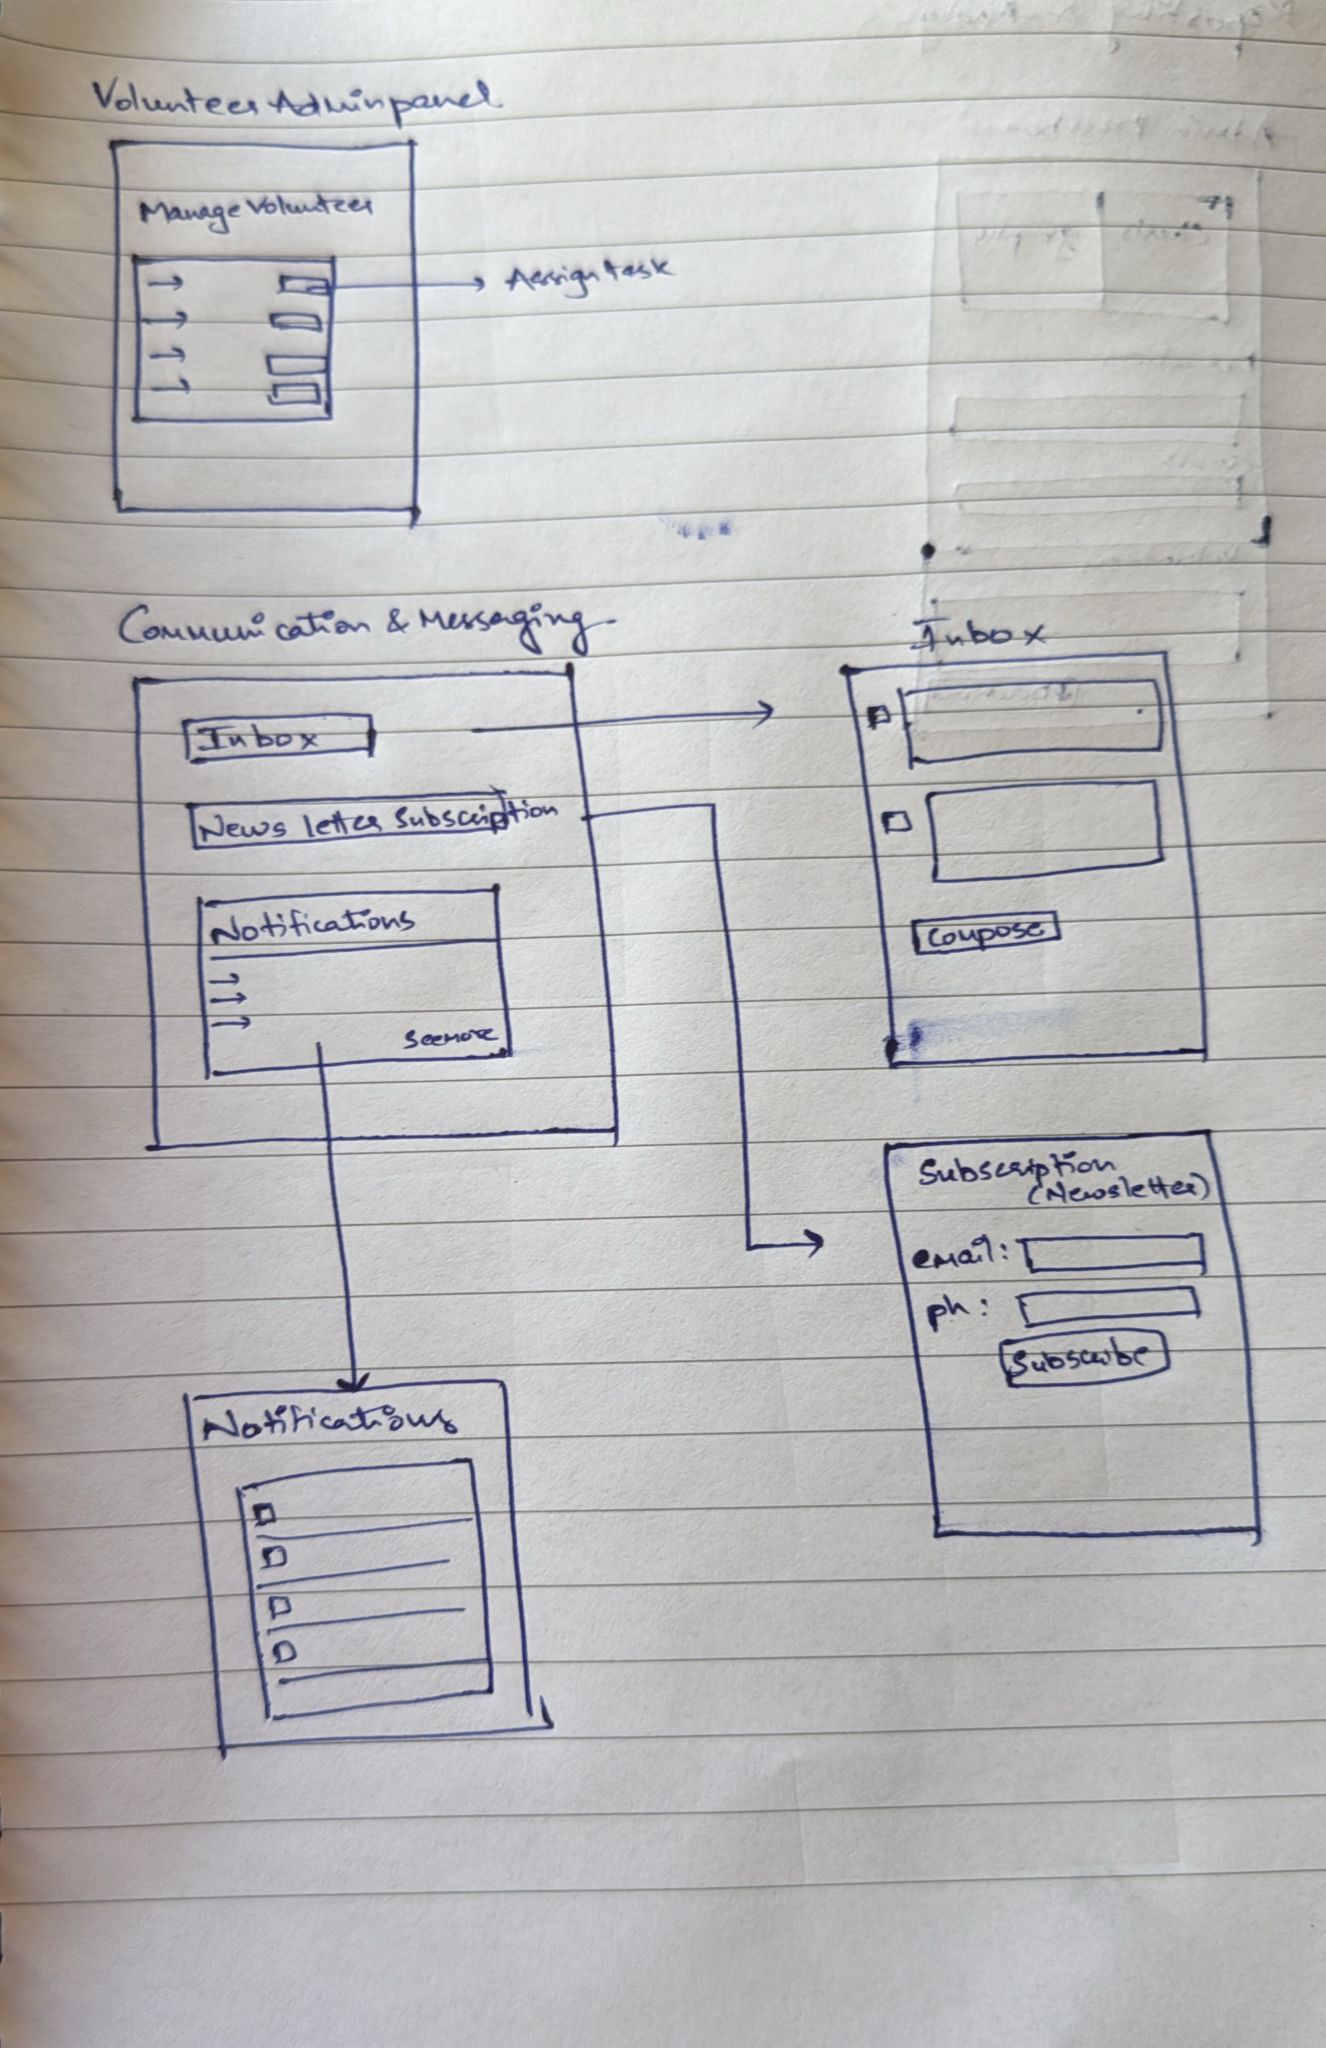 Volunteer Adminpanel
Manage Volunteer
Assign task
Communication & Messaging
Inbox
News letter Subscription
Notifications
See more
Inbox
Compose
Subscription
(Newsletter)
email:
ph:
Subscribe
Notifications